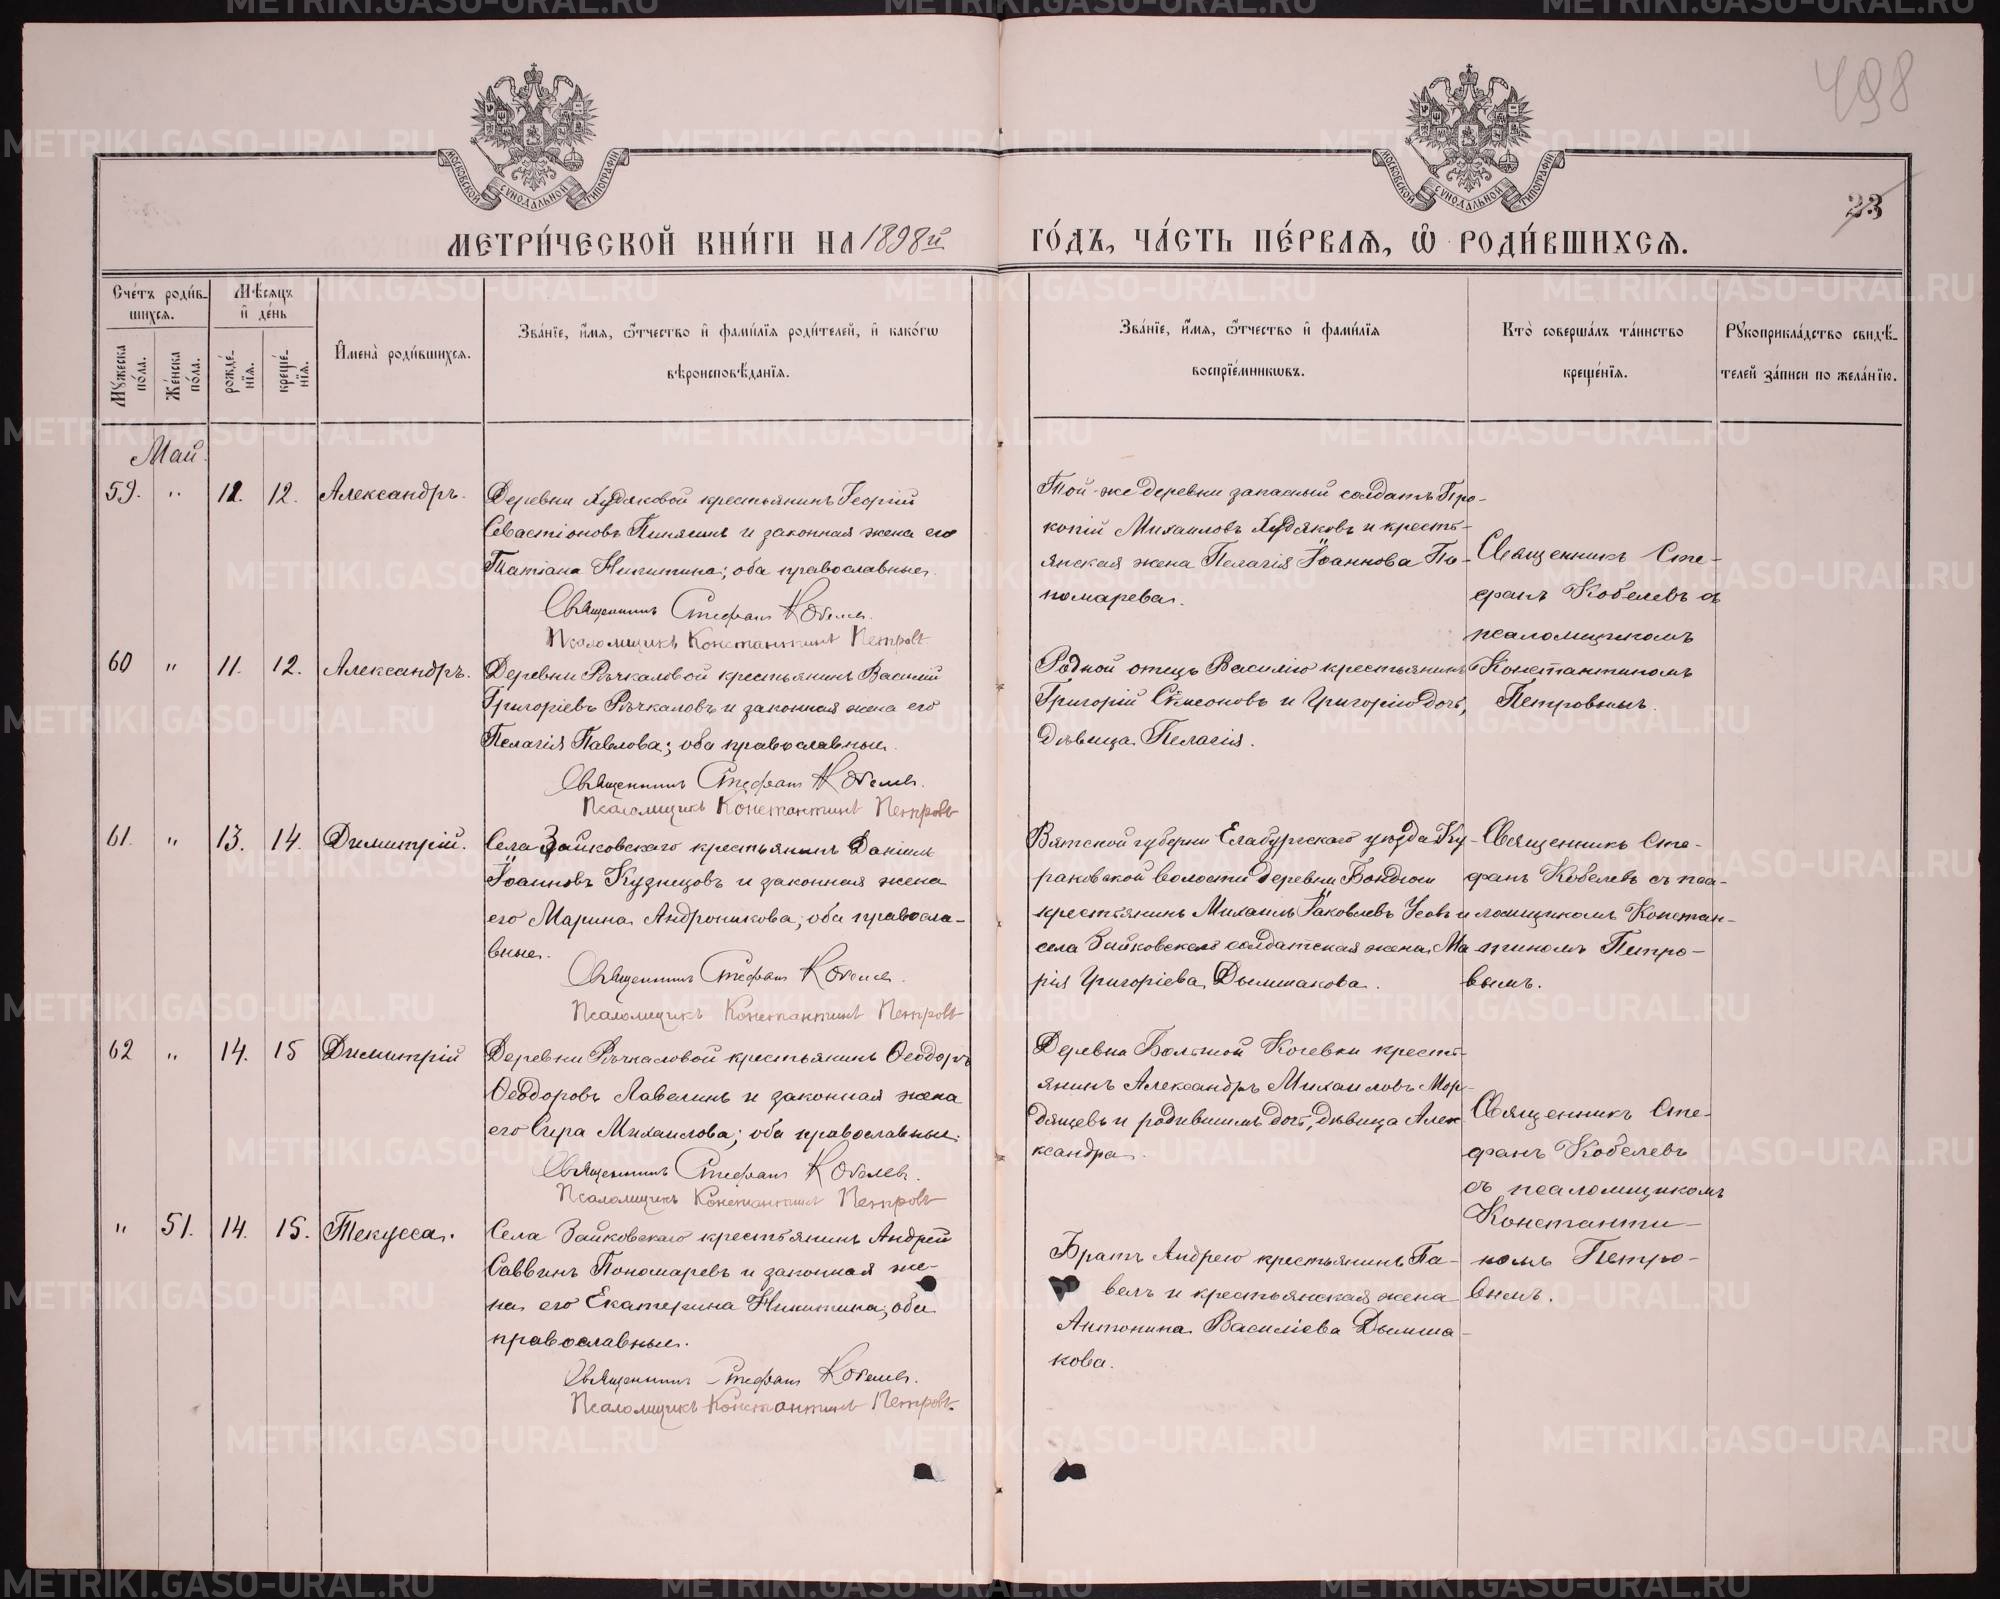 498
23
МОСКОВСКОЙ СѴНОДАЛЬНОЙ ТИПОГРАФІИ
МОСКОВСКОЙ СѴНОДАЛЬНОЙ ТИПОГРАФІИ
МЕТРИ́ЧЕСКОЙ КНИ́ГИ НА 1898й ГО́ДЪ, ЧА́СТЬ ПЕ́РВАЯ, Ѡ҆ РОДИ́ВШИХСЯ.
Сче́тъ роди́в-
шихся.
Мѣ́сяцъ
и҆ де́нь
Мꙋ́жеска
по́ла.
Же́нска
по́ла.
рожде́-
нїя.
креще́-
нїя.
И҆мена̀ роди́вшихся.
Зва́нїе, и҆́мя, ѻ҆́тчество и҆ фами́лїя роди́телей, и҆ како́гѡ
вѣроисповѣ́данїя.
Зва́нїе, и҆́мя, ѻ҆́тчество и҆ фами́лїя
воспрїе́мникѡвъ.
Кто̀ соверша́лъ та́инство
креще́нїя.
Рꙋкоприкла́дство свидѣ́-
телей за́писи по жела́нїю.
Май.
59. " 12. 12. Александръ.
Деревни Худяковой крестьянинъ Георгій
Севастіоновъ Пинягинъ и законная жена его
Татіана Никитина; оба православные.
Священникъ Стефанъ Кобелевъ.
Псаломщикъ Константинъ Петровъ
Той-же деревни запасный солдатъ Про-
копій Михаиловъ Худяковъ и кресть-
янская жена Пелагія Іоаннова По-
номарева.
Священникъ Сте-
фанъ Кобелевъ съ
псаломщикомъ
Константиномъ
Петровымъ.
60 " 11. 12. Александръ.
Деревни Речкаловой крестьянинъ Василій
Григоріевъ Речкаловъ и законная жена его
Пелагія Павлова; оба православные.
Священникъ Стефанъ Кобелевъ.
Псаломщикъ Константинъ Петровъ
Родной отецъ Василію крестьянинъ
Григорій Симеоновъ и Григорію дочь,
дѣвица Пелагія.
61. " 13. 14. Димитрій.
Села Зайковскаго крестьянинъ Даніилъ
Іоанновъ Кузнецовъ и законная жена
его Марина Андроникова; оба правосла-
вные.
Священникъ Стефанъ Кобелевъ.
Псаломщикъ Константинъ Петровъ
Вятской губерніи Елабужскаго уѣзда Ку-
раковской волости деревни Бондюги
крестьянинъ Михаилъ Іаковлевъ Усовъ и
села Зайковскаго солдатская жена Ма-
рія Григоріева Дымшакова.
Священникъ Сте-
фанъ Кобелевъ съ пса-
ломщикомъ Констан-
тиномъ Петро-
вымъ.
62 " 14. 15 Димитрій
Деревни Речкаловой крестьянинъ Ѳеодоръ
Ѳеодоровъ Лавелинъ и законная жена
его Сира Михаилова; оба православные.
Священникъ Стефанъ Кобелевъ.
Псаломщикъ Константинъ Петровъ
Деревни Большой Кочевки кресть-
янинъ Александръ Михаиловъ Мор-
дяшевъ и родившимъ дочь, дѣвица Алек-
ксандра.
Священникъ Сте-
фанъ Кобелевъ
съ псаломщикомъ
Константи-
номъ Петро-
вымъ.
" 51. 14. 15. Текусса.
Села Зайковскаго крестьянинъ Андрей
Саввинъ Пономаревъ и законная же-
на его Екатерина Никитина; оба
православные.
Священникъ Стефанъ Кобелевъ.
Псаломщикъ Константинъ Петровъ.
Братъ Андрею крестьянинъ Па-
велъ и крестьянская жена
Антонина Василіева Дымша-
кова.
METRIKI.GASO-URAL.RU